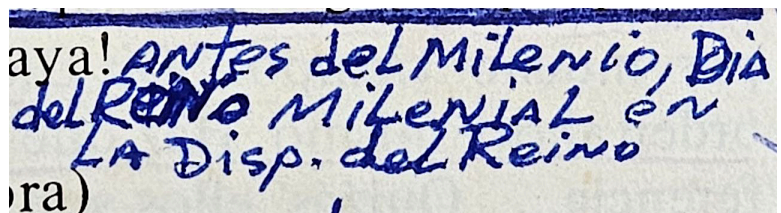 aya! Antes del Milenio, Dia
del Reino Milenial en
LA Disp. del Reino
ora)